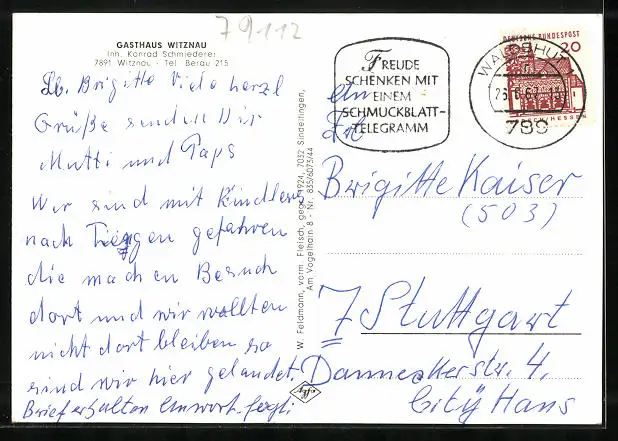 79112
GASTHAUS WITZNAU
Inh. Konrad Schmiederer
7891 Witznau - Tel. Berau 215
Lb. Brigitte Viele herzl
Grüße senden Dir
Mutti und Paps
Wir sind mit Kindlers
nach Tiengen gefahren
die machen Besuch
dort und wir wollten
nicht dort bleiben so
sind wir hier gelandet.
Brief erhalten Antwort folgt
W. Feldmann, vorm. Fleisch, gegr. 1924, 7032 Sindelfingen,
Am Vogelhain 8 - Nr. 835/6073/44
Agfa
FREUDE
SCHENKEN MIT
EINEM
SCHMUCKBLATT-
TELEGRAMM
WALDSHUT
789
DEUTSCHE BUNDESPOST
20
LORSCH/HESSEN
Frl
Brigitte Kaiser
(503)
7 Stuttgart
Danneckerstr. 4.
City Haus